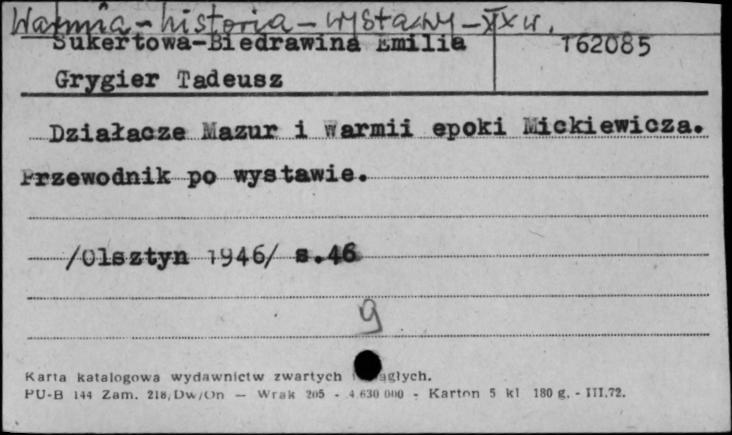 Warmia - historia - wystawy - XX w.
Sukertowa-Biedrawina Emilia T62085
Grygier Tadeusz
Działacze Mazur i Warmii epoki Mickiewicza.
Przewodnik po wystawie.
/Olsztyn 1946/ s.46
g
Karta katalogowa wydawnictw zwartych i ciągłych.
PU-B 144 Zam. 218/Dw/On — Wrak 205 - 4.630 000 - Karton 5 kl 180 g. - III.72.